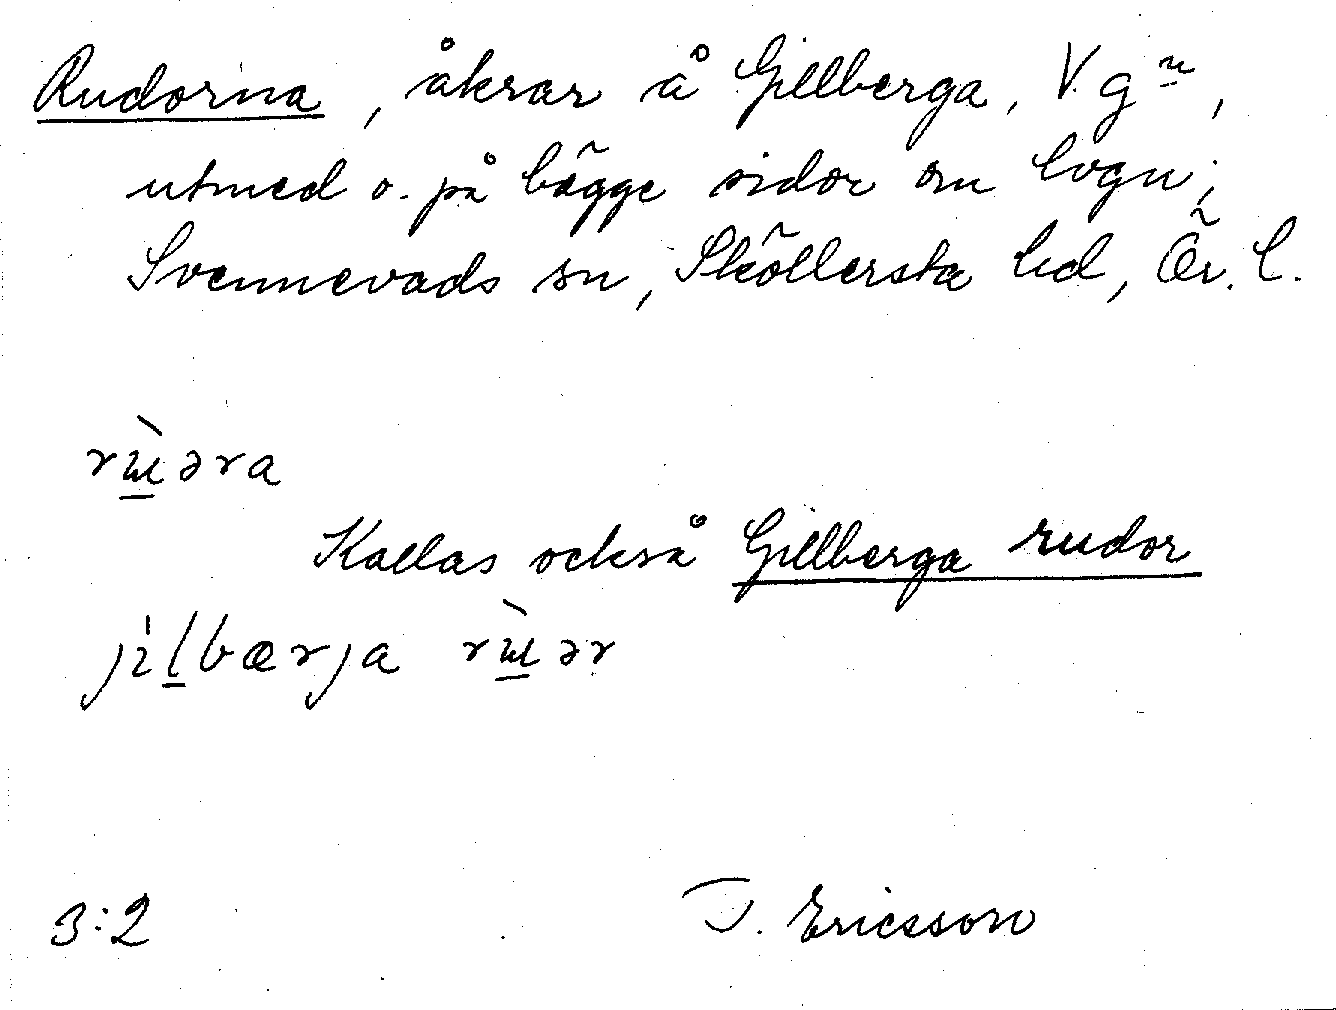 Rudorna, åkrar å Gillberga, V. gn,
utmed o. på bägge sidor om lvgn;
Svennevads sn, Sköllersta hd, Ör. l.
rɯ̀əra
Kallas också Gillberga rudor
jɪ́lbærja rɯ̀ər
3:2 J. Ericsson